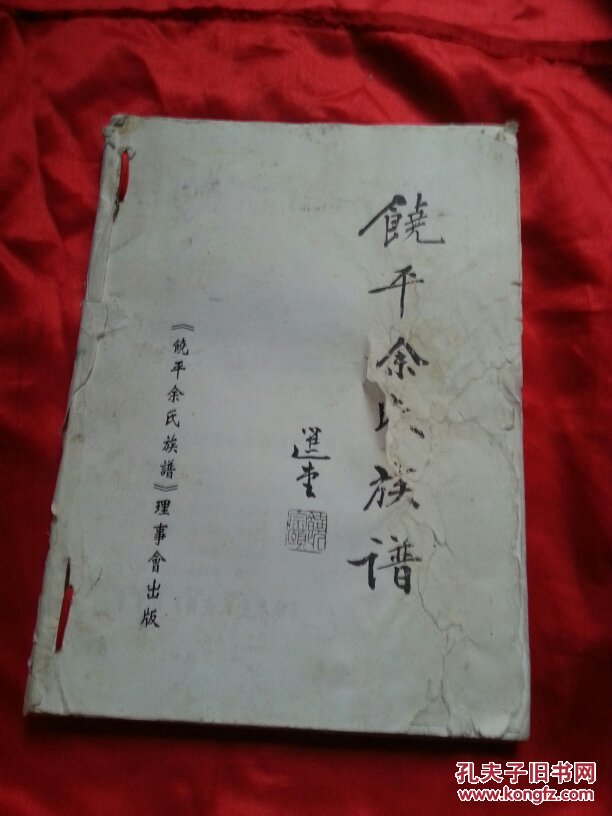 饒平余氏族譜
選堂
饒宗頤
《饒平余氏族譜》理事會出版
孔夫子旧书网
www.kongfz.com